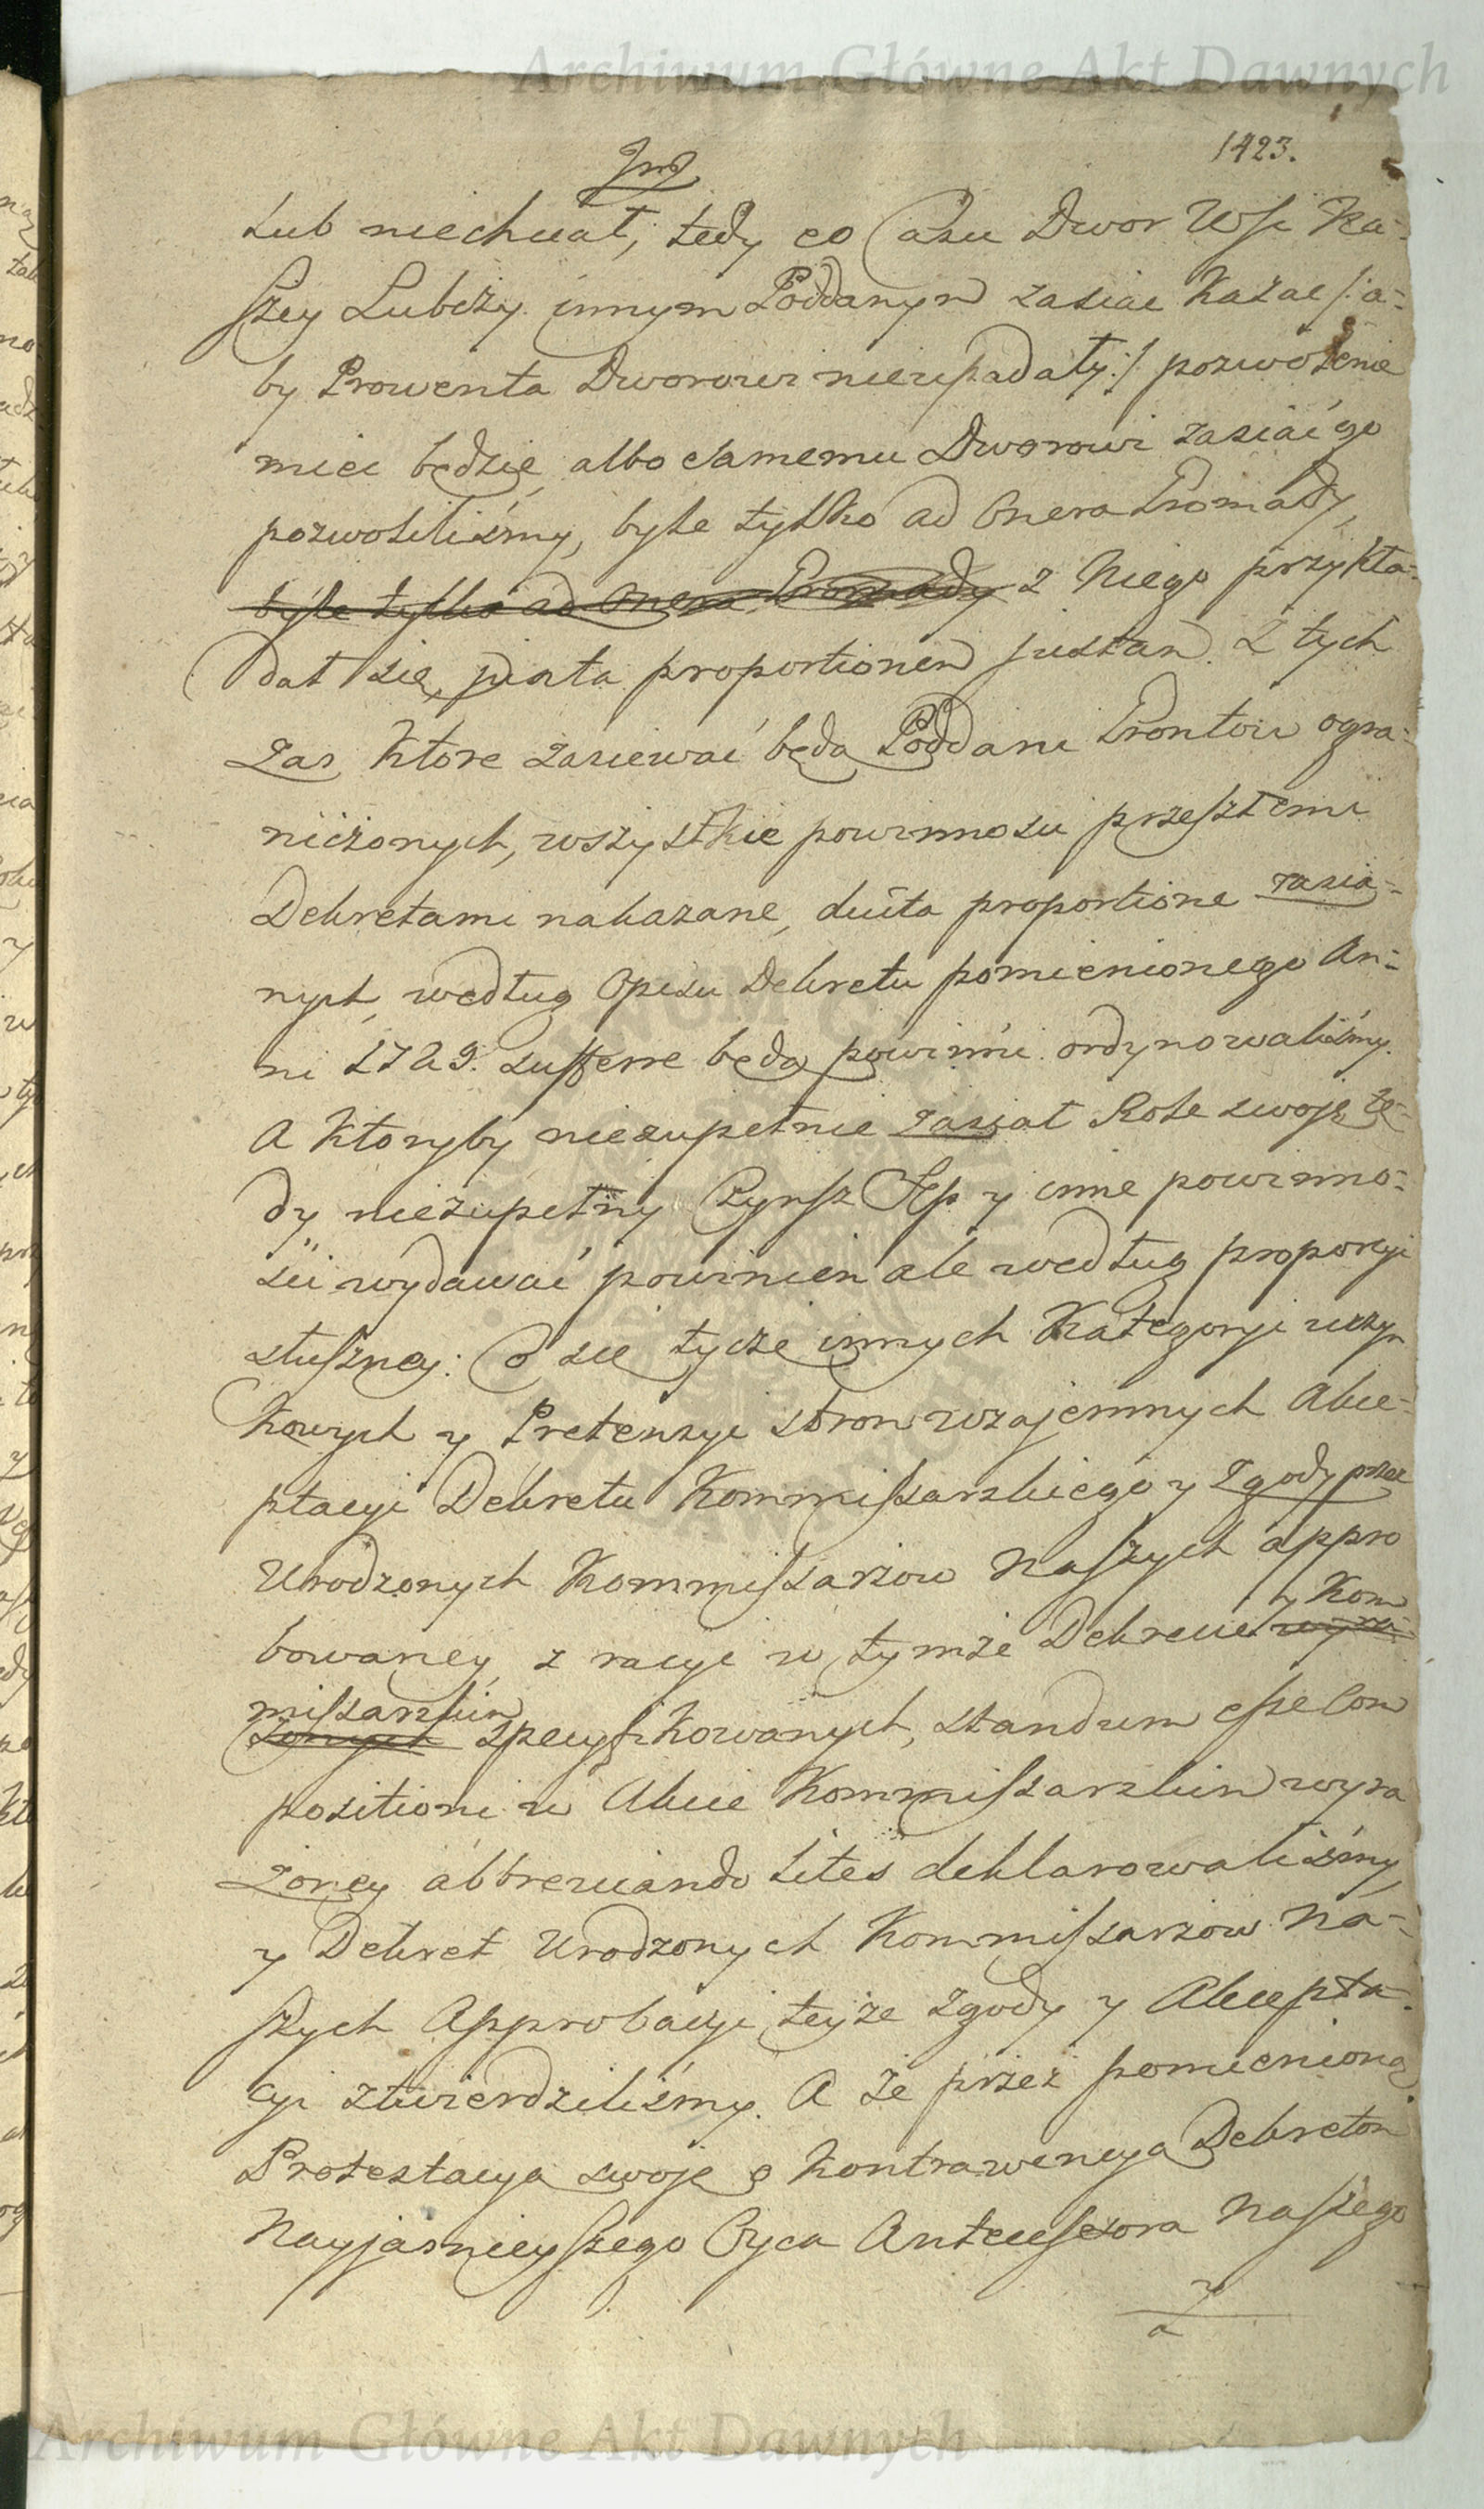 Archiwum Główne Akt Dawnych
1423.
Lub niechciał, tedy co Czasu Dwor Wsi Na-
szey Lubczy innym Poddanym zasiac kazac /:a-
by Prowenta Dworowi nieupadały:/ pozwolenie
miec będzie, albo samemu Dworowi zasiać go
pozwoliliśmy, byle tylko ad Onera Gromady,
byle tylko ad Onera Gromady z Niego przykła-
dał się, juxta proportionem justam. Z tych
zas ktore zasiewać będą Poddani Grontow ogra-
niczonych, wszystkie powinnosci przeszłemi
Dekretami nakazane, ducta proportione zasia-
nych, według Opisu Dekretu pomienionego An-
ni 1729. sufferre będą powinni ordynowaliśmy.
A ktoryby niezupełnie zasiał Role swoje te-
dy niezupełny Czynsz Sep y inne powinno-
sci wydawać powinien ale według proporcyi
słuszney: Co się tycze innych Kategoryi uczyn
kowych y Pretensyi stron wzajemnych Akce-
ptacyi Dekretu Kommissarskiego y Zgody przez
Urodzonych Kommissarzow Naszych appro
bowaney z racyi w tymze Dekrecie
y Kom
missarskim
specyfikowanych, standum esse Com
positioni w Akcie Kommissarskim wyra
zoney abbreviando Lites deklarowaliśmy
y Dekret Urodzonych Kommissarzow Na-
szych Approbacyi teyze Zgody y Akcepta-
cyi ztwierdziliśmy. A że przez pomienioną
Protestacyą swoję o Kontrawencyą Dekretom
Nayjasnieyszego Oyca Antecessora Naszego
y
Archiwum Główne Akt Dawnych